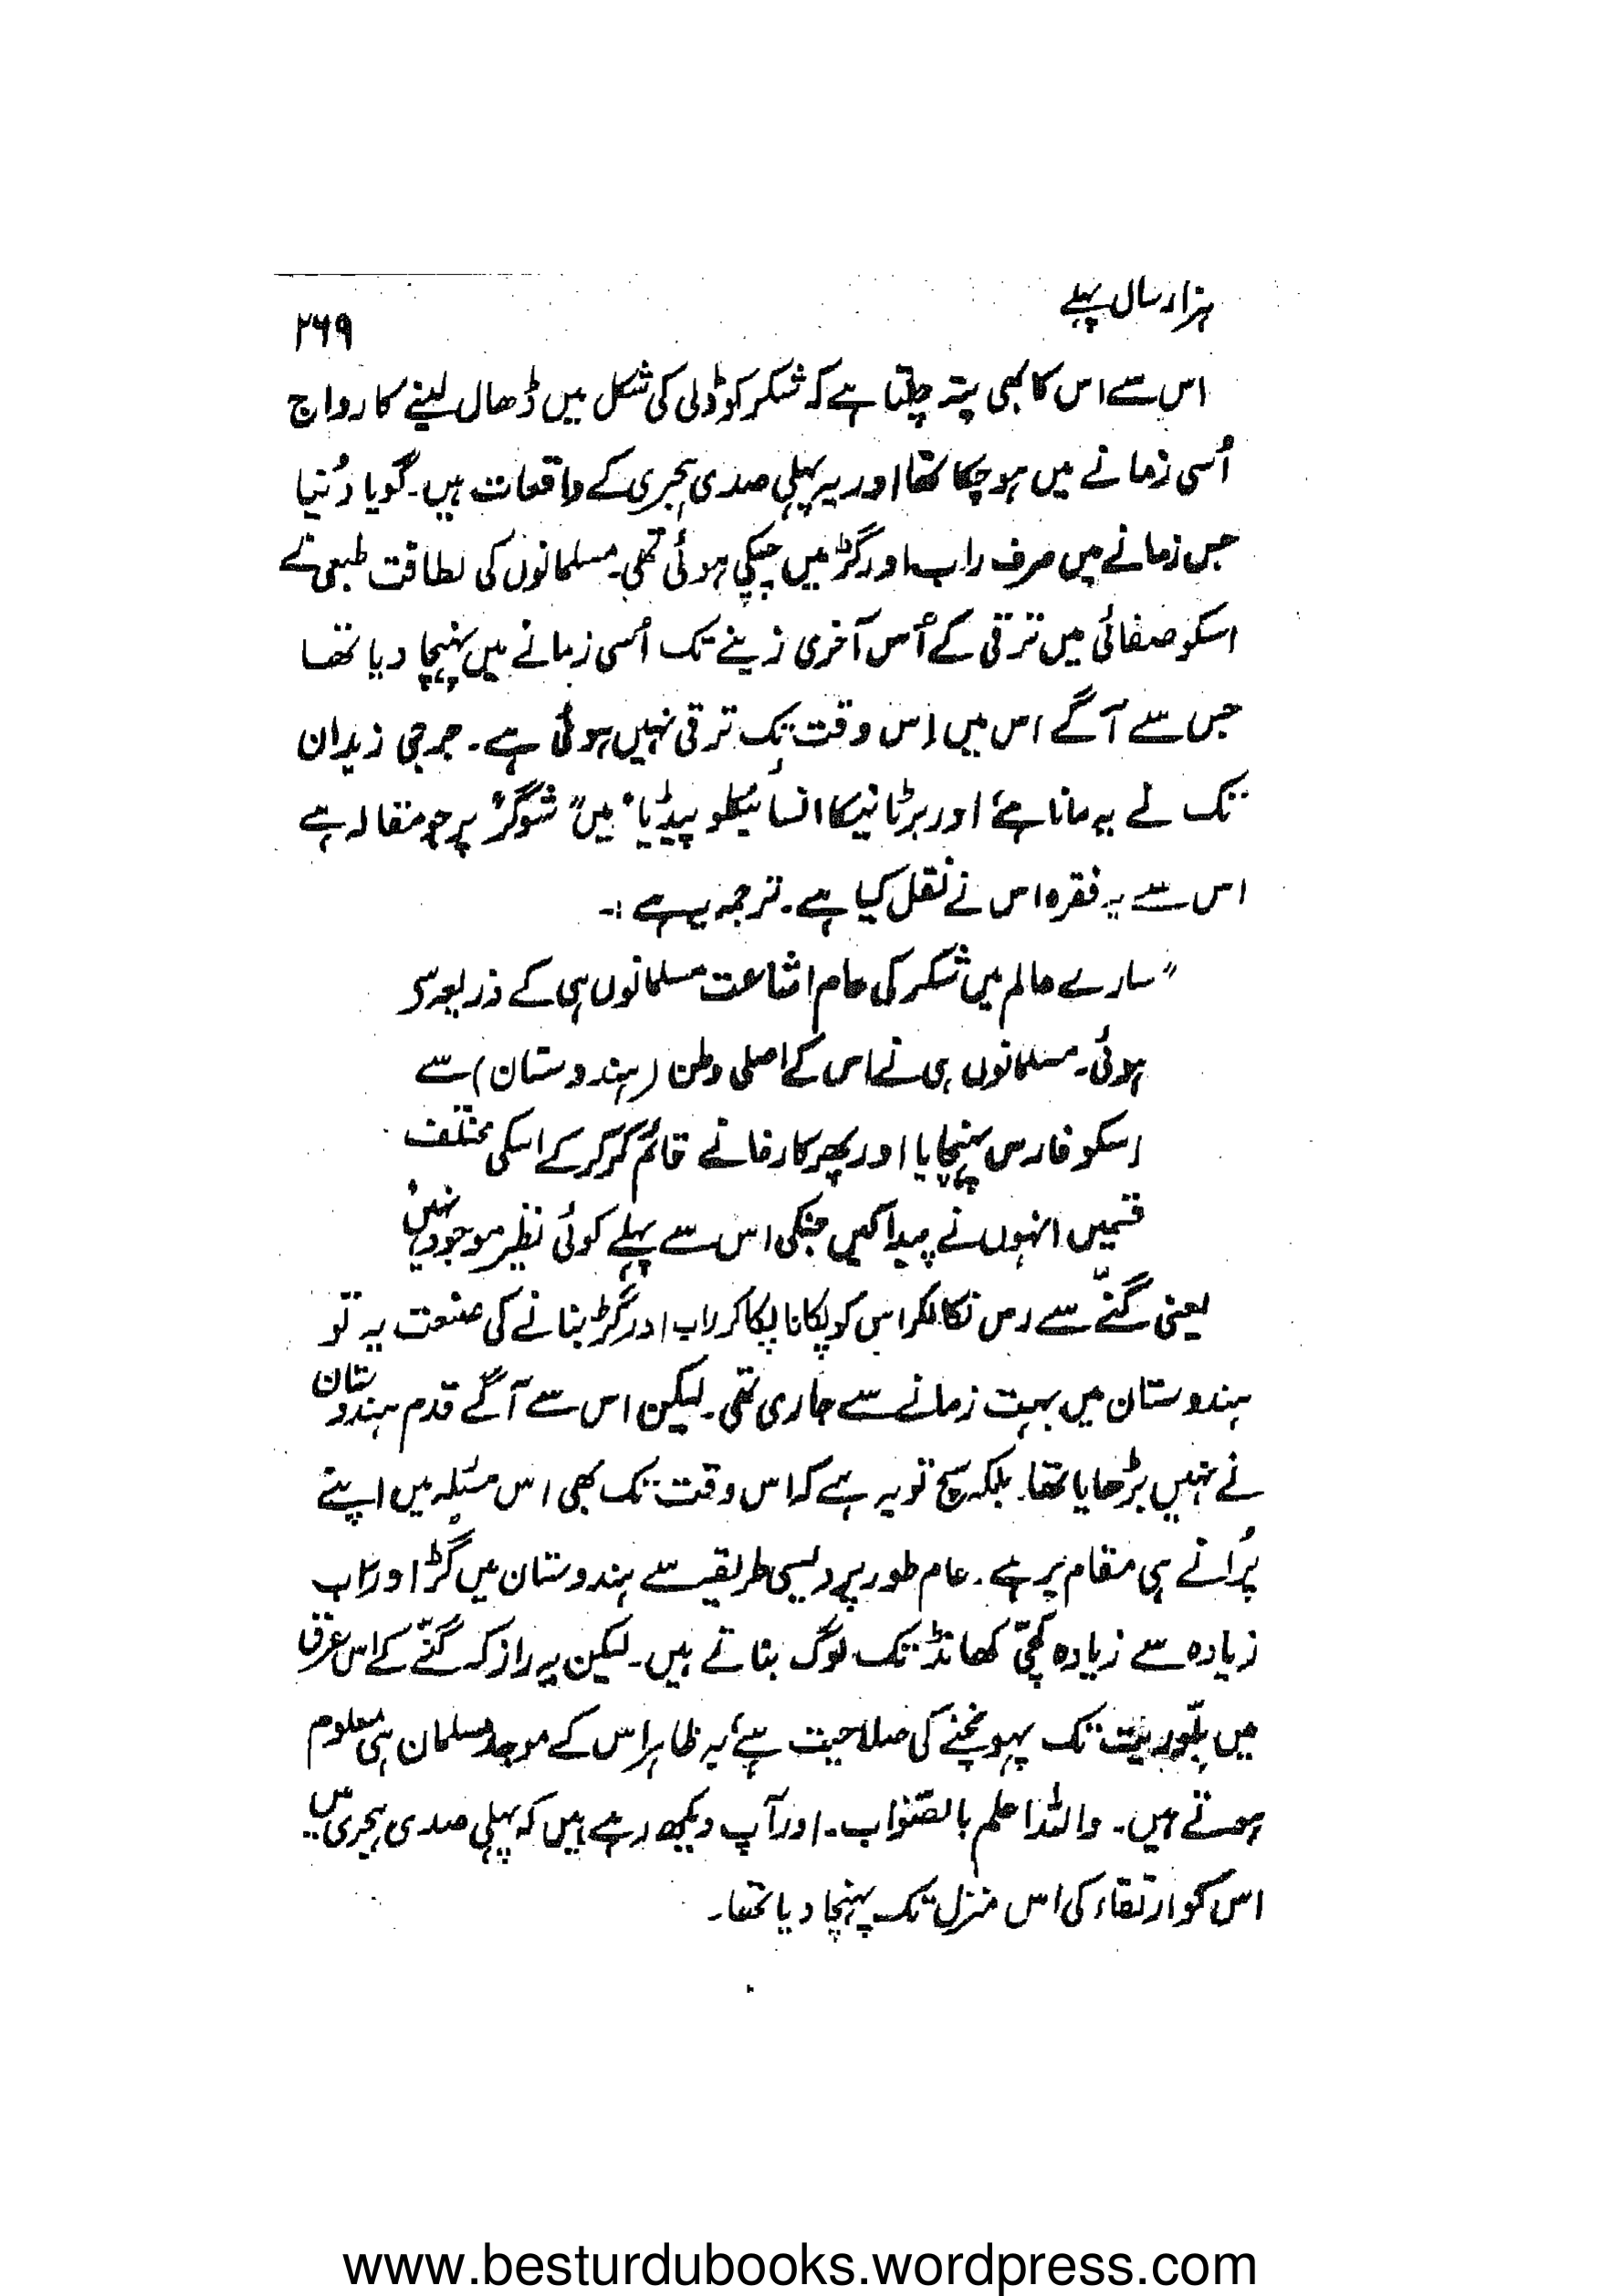 ہزار سال پہلے
۲۶۹
اس سے اس کا بھی پتہ چلتا ہے کہ شکر کو ڈلی کی شکل میں ڈھال لینے کا رواج
اُسی زمانے میں ہو چکا تھا اور یہ پہلی صدی ہجری کے واقعات ہیں۔ گویا دُنیا
جس زمانے میں صرف راب اور گڑ میں چپکی ہوئی تھی۔ مسلمانوں کی لطافت طبعی نے
اسکو صفائی میں ترقی کے اُس آخری زینے تک اُسی زمانے میں پہنچا دیا تھا
جس سے آگے اس میں اِس وقت تک ترقی نہیں ہوئی ہے۔ جرجی زیدان
تک نے یہ مانا ہے اور برٹانیکا انسائیکلو پیڈیا" میں "شوگر" پر جو مقالہ ہے
اس سے یہ فقرہ اس نے نقل کیا ہے۔ ترجمہ یہ ہے :۔
"سارے عالم میں شکر کی عام اشاعت مسلمانوں ہی کے ذریعہ سے
ہوئی۔ مسلمانوں ہی نے اس کے اصلی وطن (ہندوستان) سے
اسکو فارس پہنچایا اور پھر کارخانے قائم کر کر کے اسکی مختلف
قسمیں انہوں نے پیدا کیں جنکی اس سے پہلے کوئی نظیر موجود نہیں"
یعنی گنّے سے رس نکالکر اس کو پکانا پکا کر راب اور گڑ بنانے کی صنعت یہ تو
ہندوستان میں بہت زمانے سے جاری تھی۔ لیکن اس سے آگے قدم ہندوستان
نے نہیں بڑھایا تھا۔ بلکہ سچ تو یہ ہے کہ اس وقت تک بھی اس مسئلہ میں اپنے
پُرانے ہی مقام پر ہے۔ عام طور پر دیسی طریقے سے ہندوستان میں گڑ اور راب
زیادہ سے زیادہ کچّی کھانڈ تک لوگ بناتے ہیں۔ لیکن یہ راز کہ گنّے کے اس عرق
میں بلّوریت تک پہونچنے کی صلاحیت ہے یہ ظاہر اس کے موجد مسلمان ہی معلوم
ہوتے ہیں۔ واللہ اعلم بالصّواب۔ اور آپ دیکھ رہے ہیں کہ پہلی صدی ہجری میں
اس کو ارتقاء کی اس منزل تک پہنچا دیا تھا۔
www.besturdubooks.wordpress.com